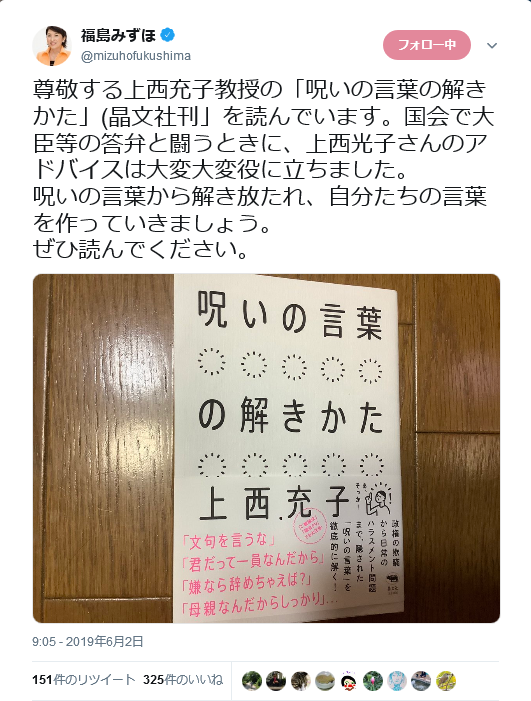 福島みずほ
@mizuhofukushima
フォロー中
尊敬する上西充子教授の「呪いの言葉の解き
かた」(晶文社刊」を読んでいます。国会で大
臣等の答弁と闘うときに、上西光子さんのア
ドバイスは大変大変役に立ちました。
呪いの言葉から解き放たれ、自分たちの言葉
を作っていきましょう。
ぜひ読んでください。
呪いの言葉
の解きかた
上西充子
「文句を言うな」
「君だって一員なんだから」
「嫌なら辞めちゃえば?」
「母親なんだからしっかり」…
政権の欺瞞
から日常の
ハラスメント問題
まで、隠された
「呪いの言葉」を
徹底的に解く!
9:05 - 2019年6月2日
151件のリツイート 325件のいいね